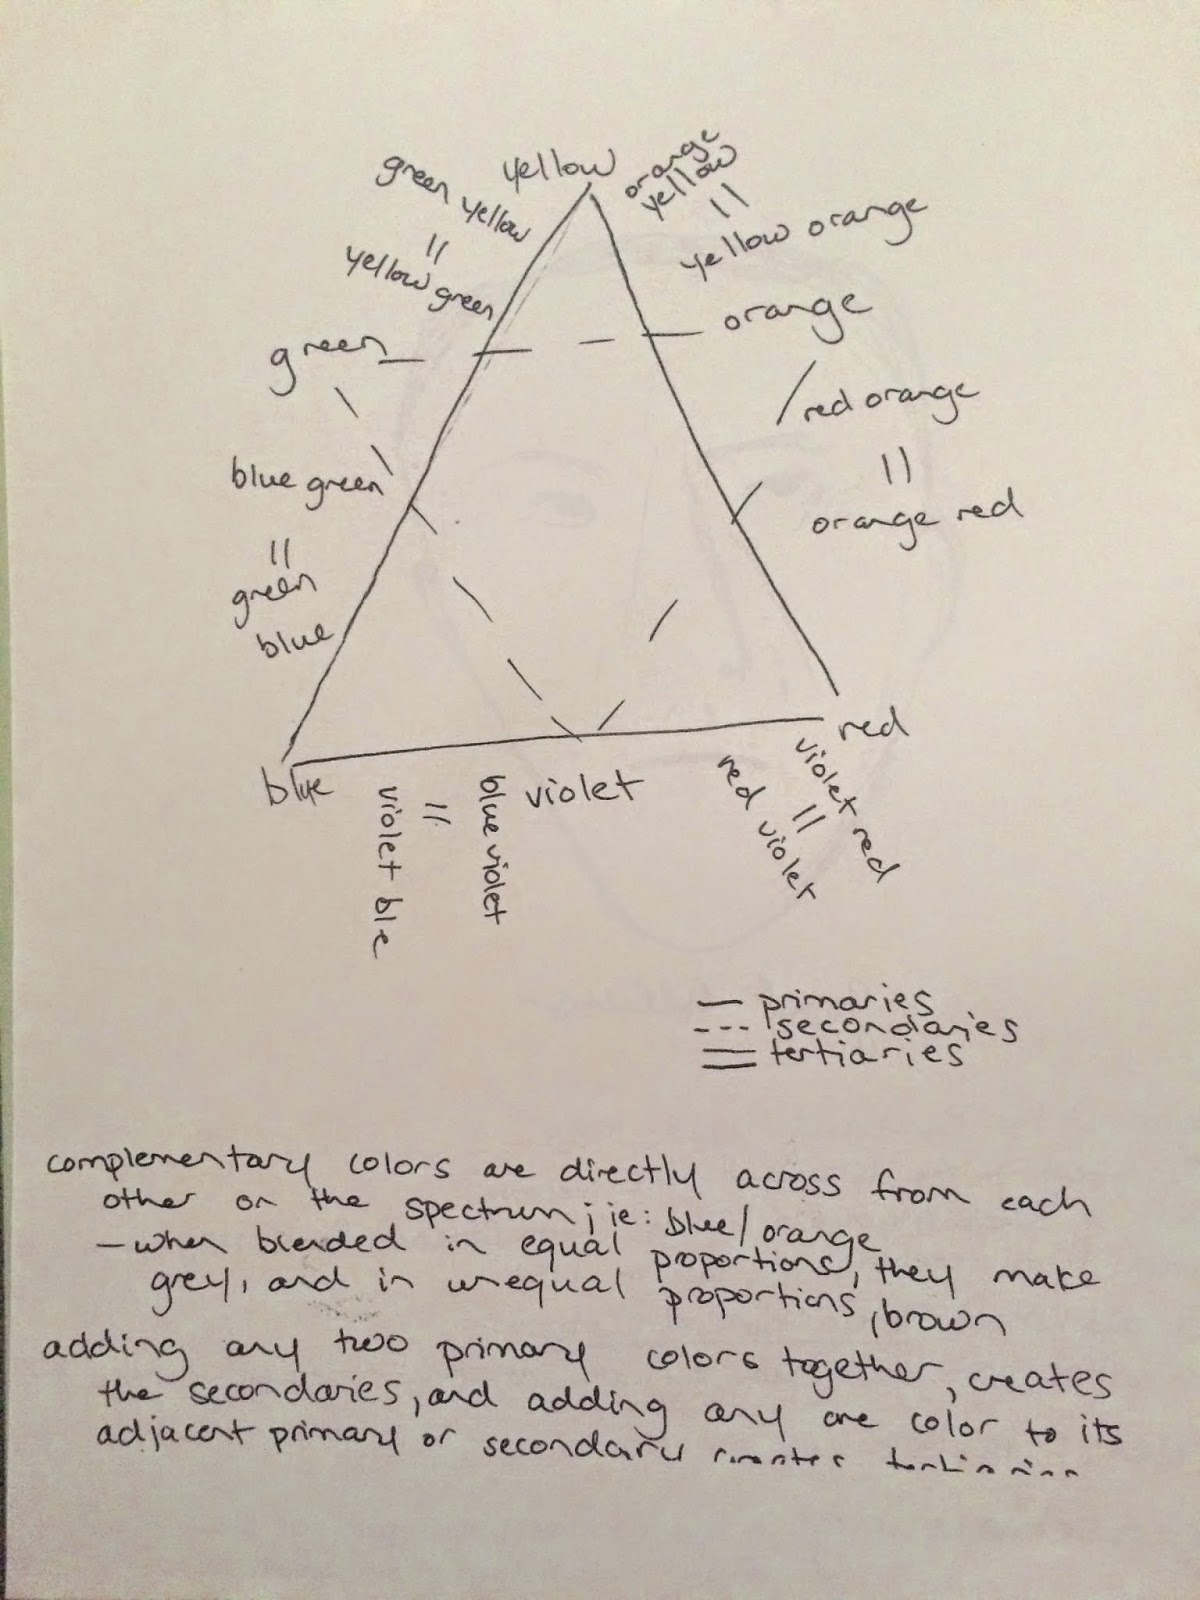 green yellow
yellow
orange
yellow
||
yellow orange
||
yellow green
green
orange
red orange
||
orange red
blue green
||
green
blue
blue
violet ble
||
blue violet
violet
red
red violet
||
violet red
primaries
secondaries
tertiaries
complementary colors are directly across from each
other on the spectrum; ie: blue/orange
- when blended in equal proportions, they make
grey, and in unequal proportions, brown
adding any two primary colors together, creates
the secondaries, and adding any one color to its
adjacent primary or secondary creates